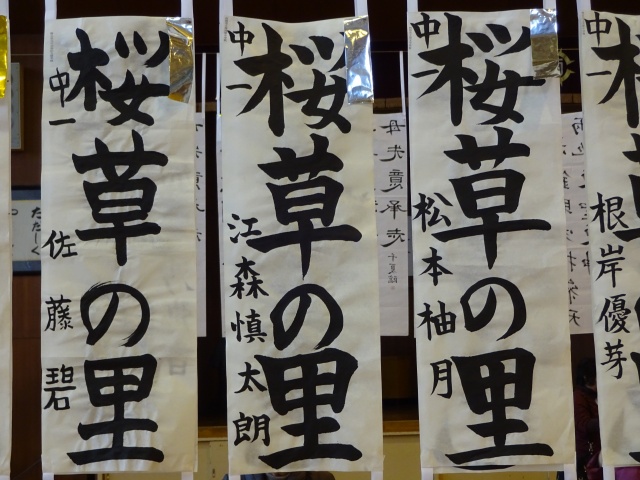 桜草の里
中一 佐藤碧
桜草の里
中一 江森慎太朗
桜草の里
中一 松本柚月
中一 根岸優芽